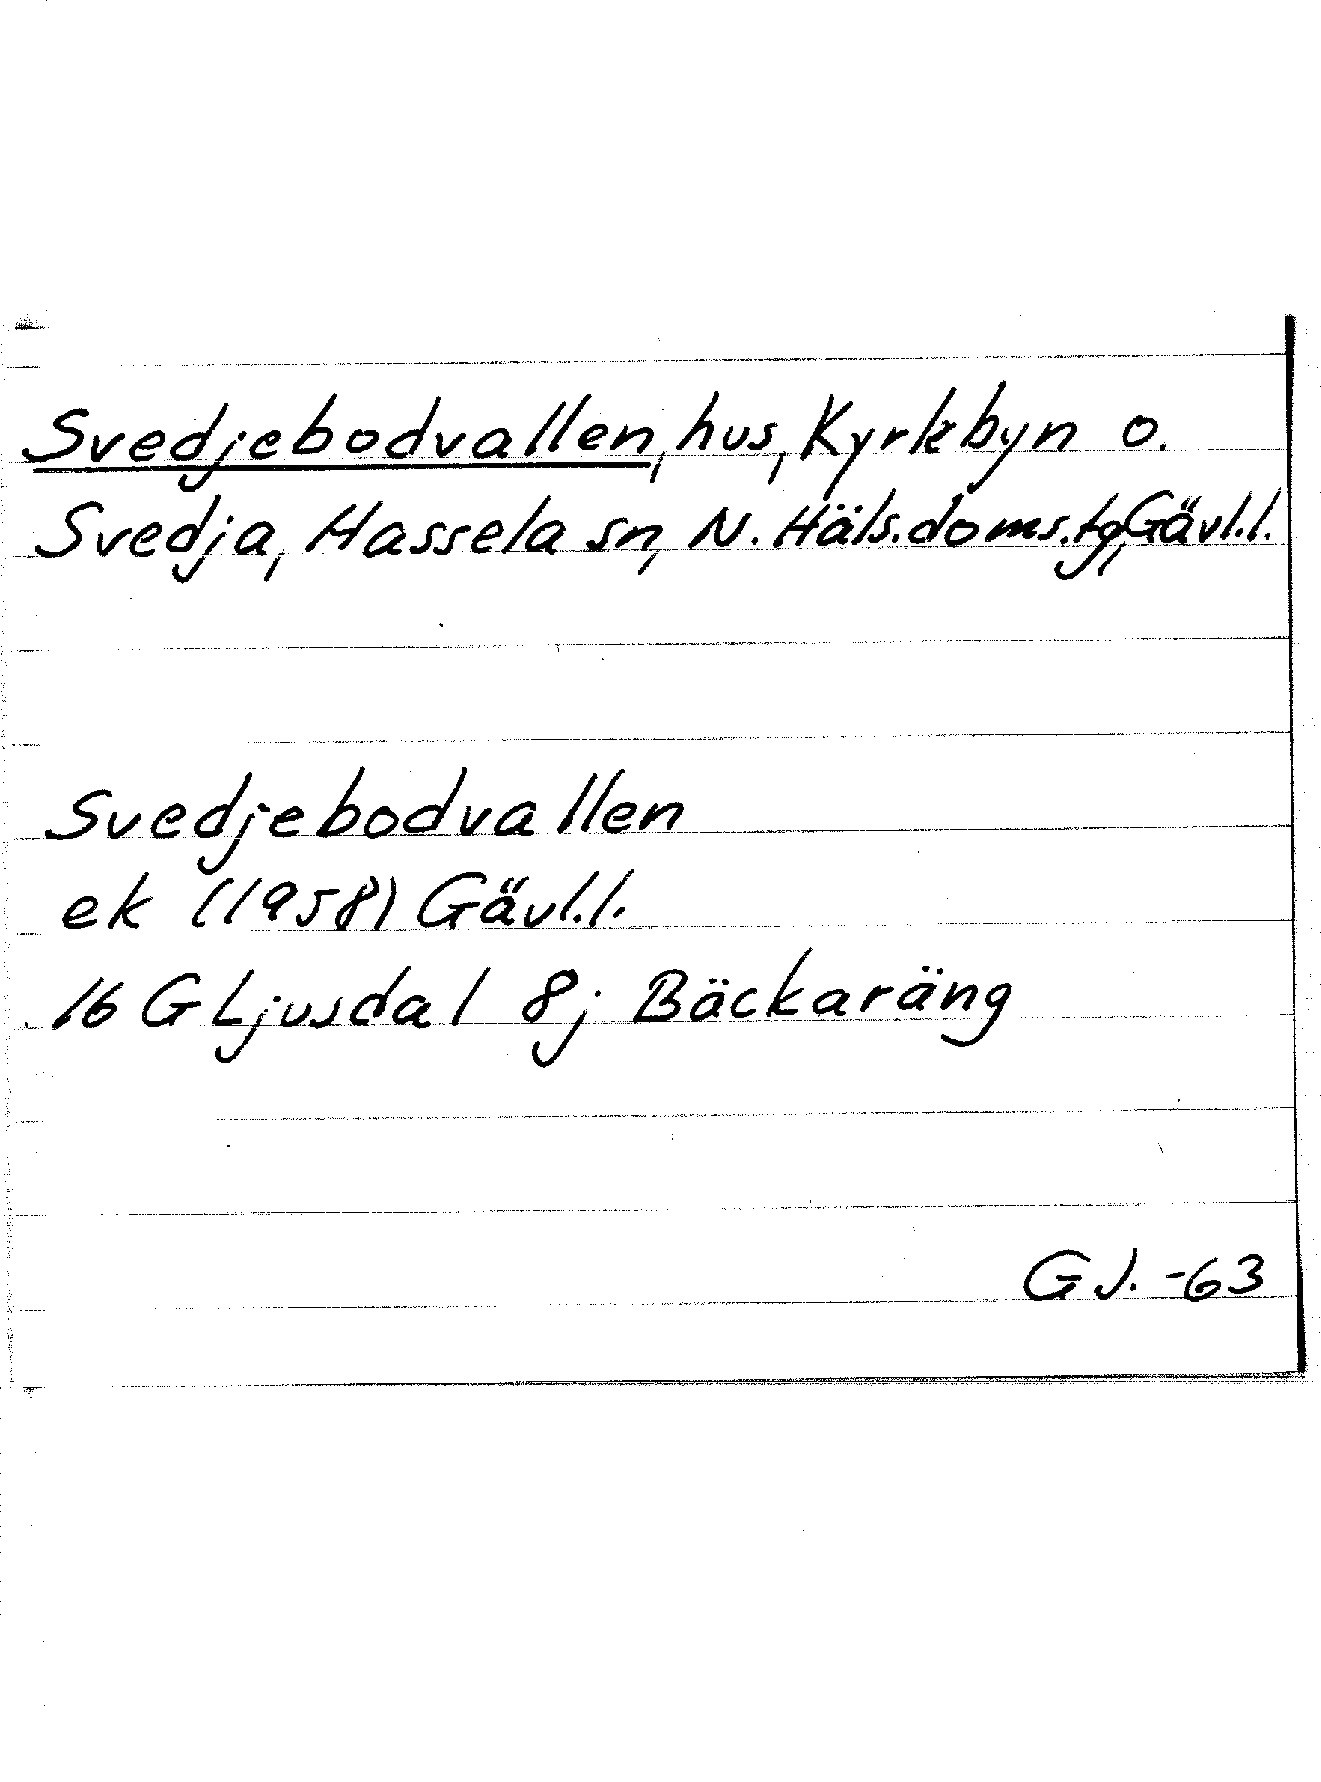 Svedjebodvallen, hus, Kyrkbyn o.
Svedja, Hassela sn, N. Häls. doms.tg, Gävl.l.
Svedjebodvallen
ek (1958) Gävl.l.
16 G Ljusdal 8j Bäckaräng
GJ. -63